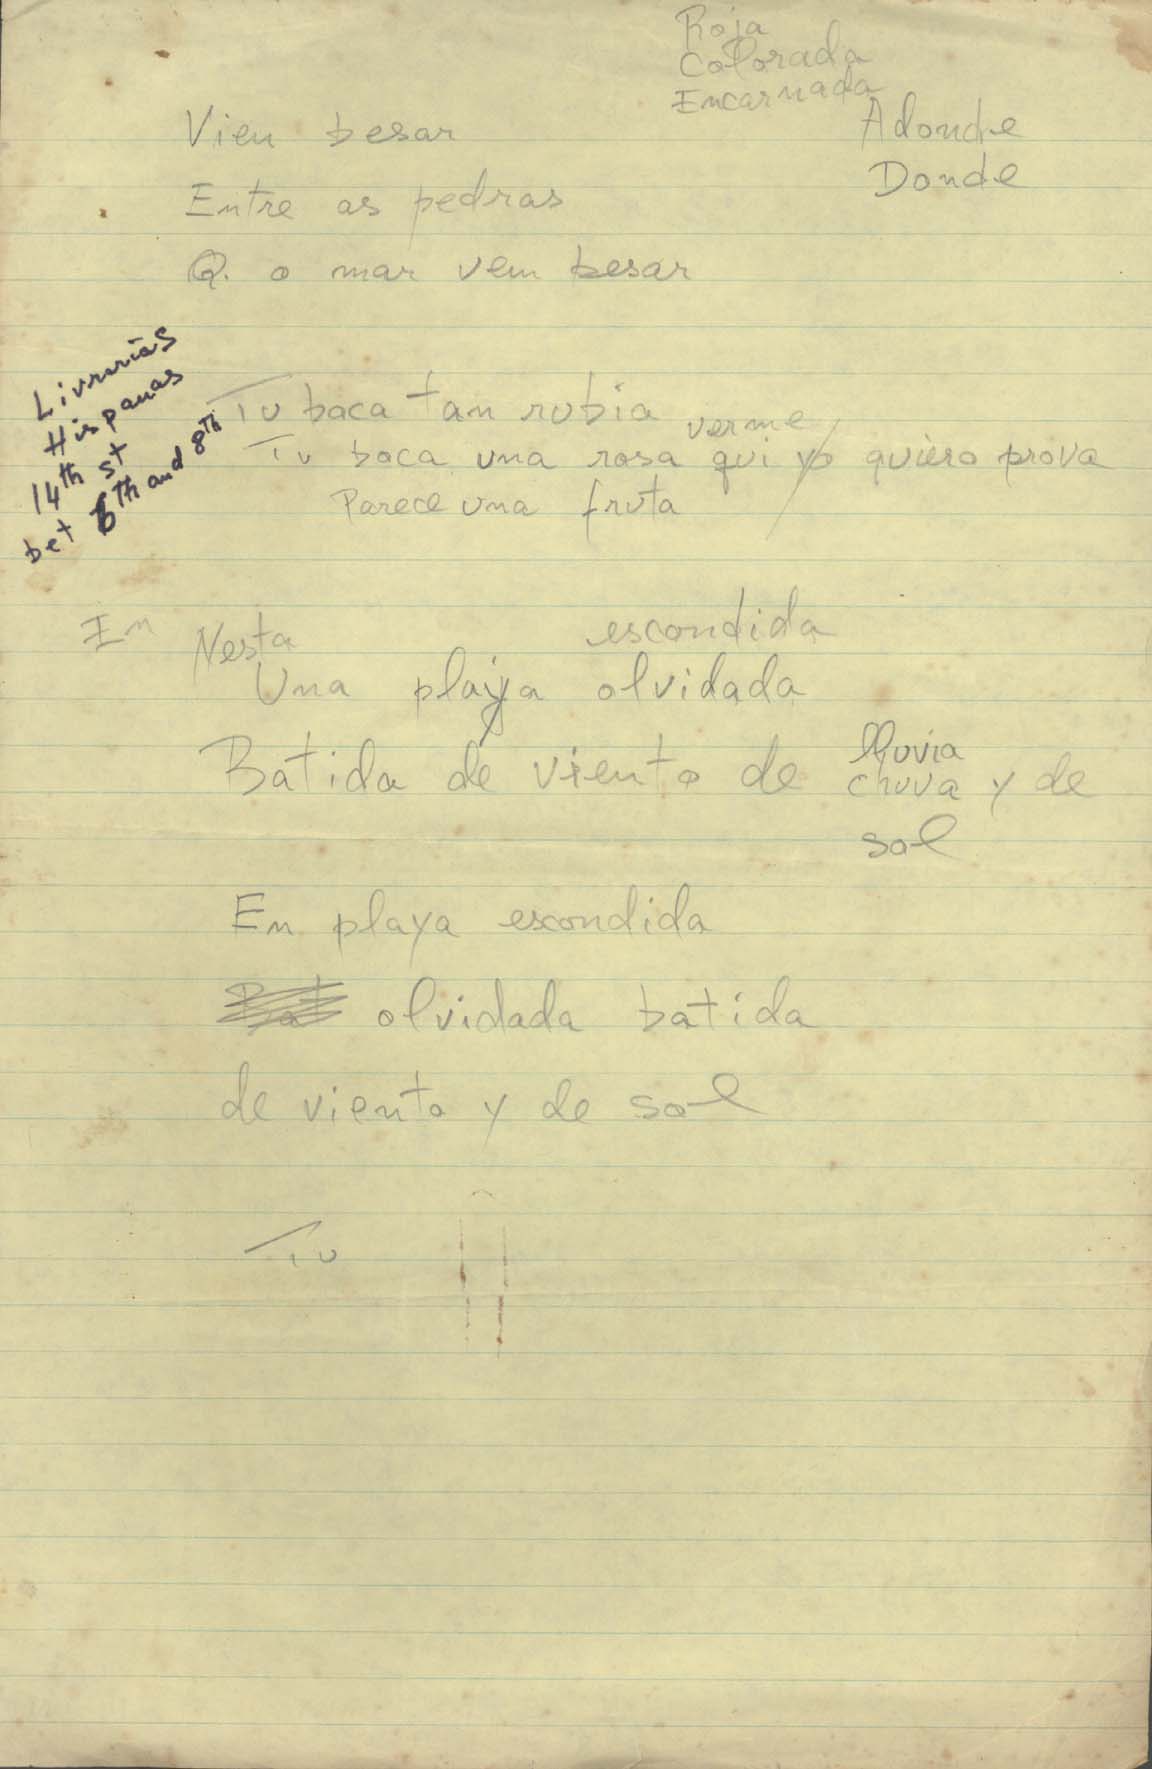 Roja
Colorada
Encarnada
Adonde
Donde
Vien besar
Entre as pedras
Q. o mar vem besar
Livrarias
Hispanas
14th st
bet 6th and 8th
Tu boca tan rubia
verme
Tu boca una rosa qui yo quiero prova
Parece una fruta
En Nesta escondida
Una playa olvidada
lluvia
Batida de viento de chuva y de
sol
En playa escondida
Bat olvidada batida
de viento y de sol
Tu